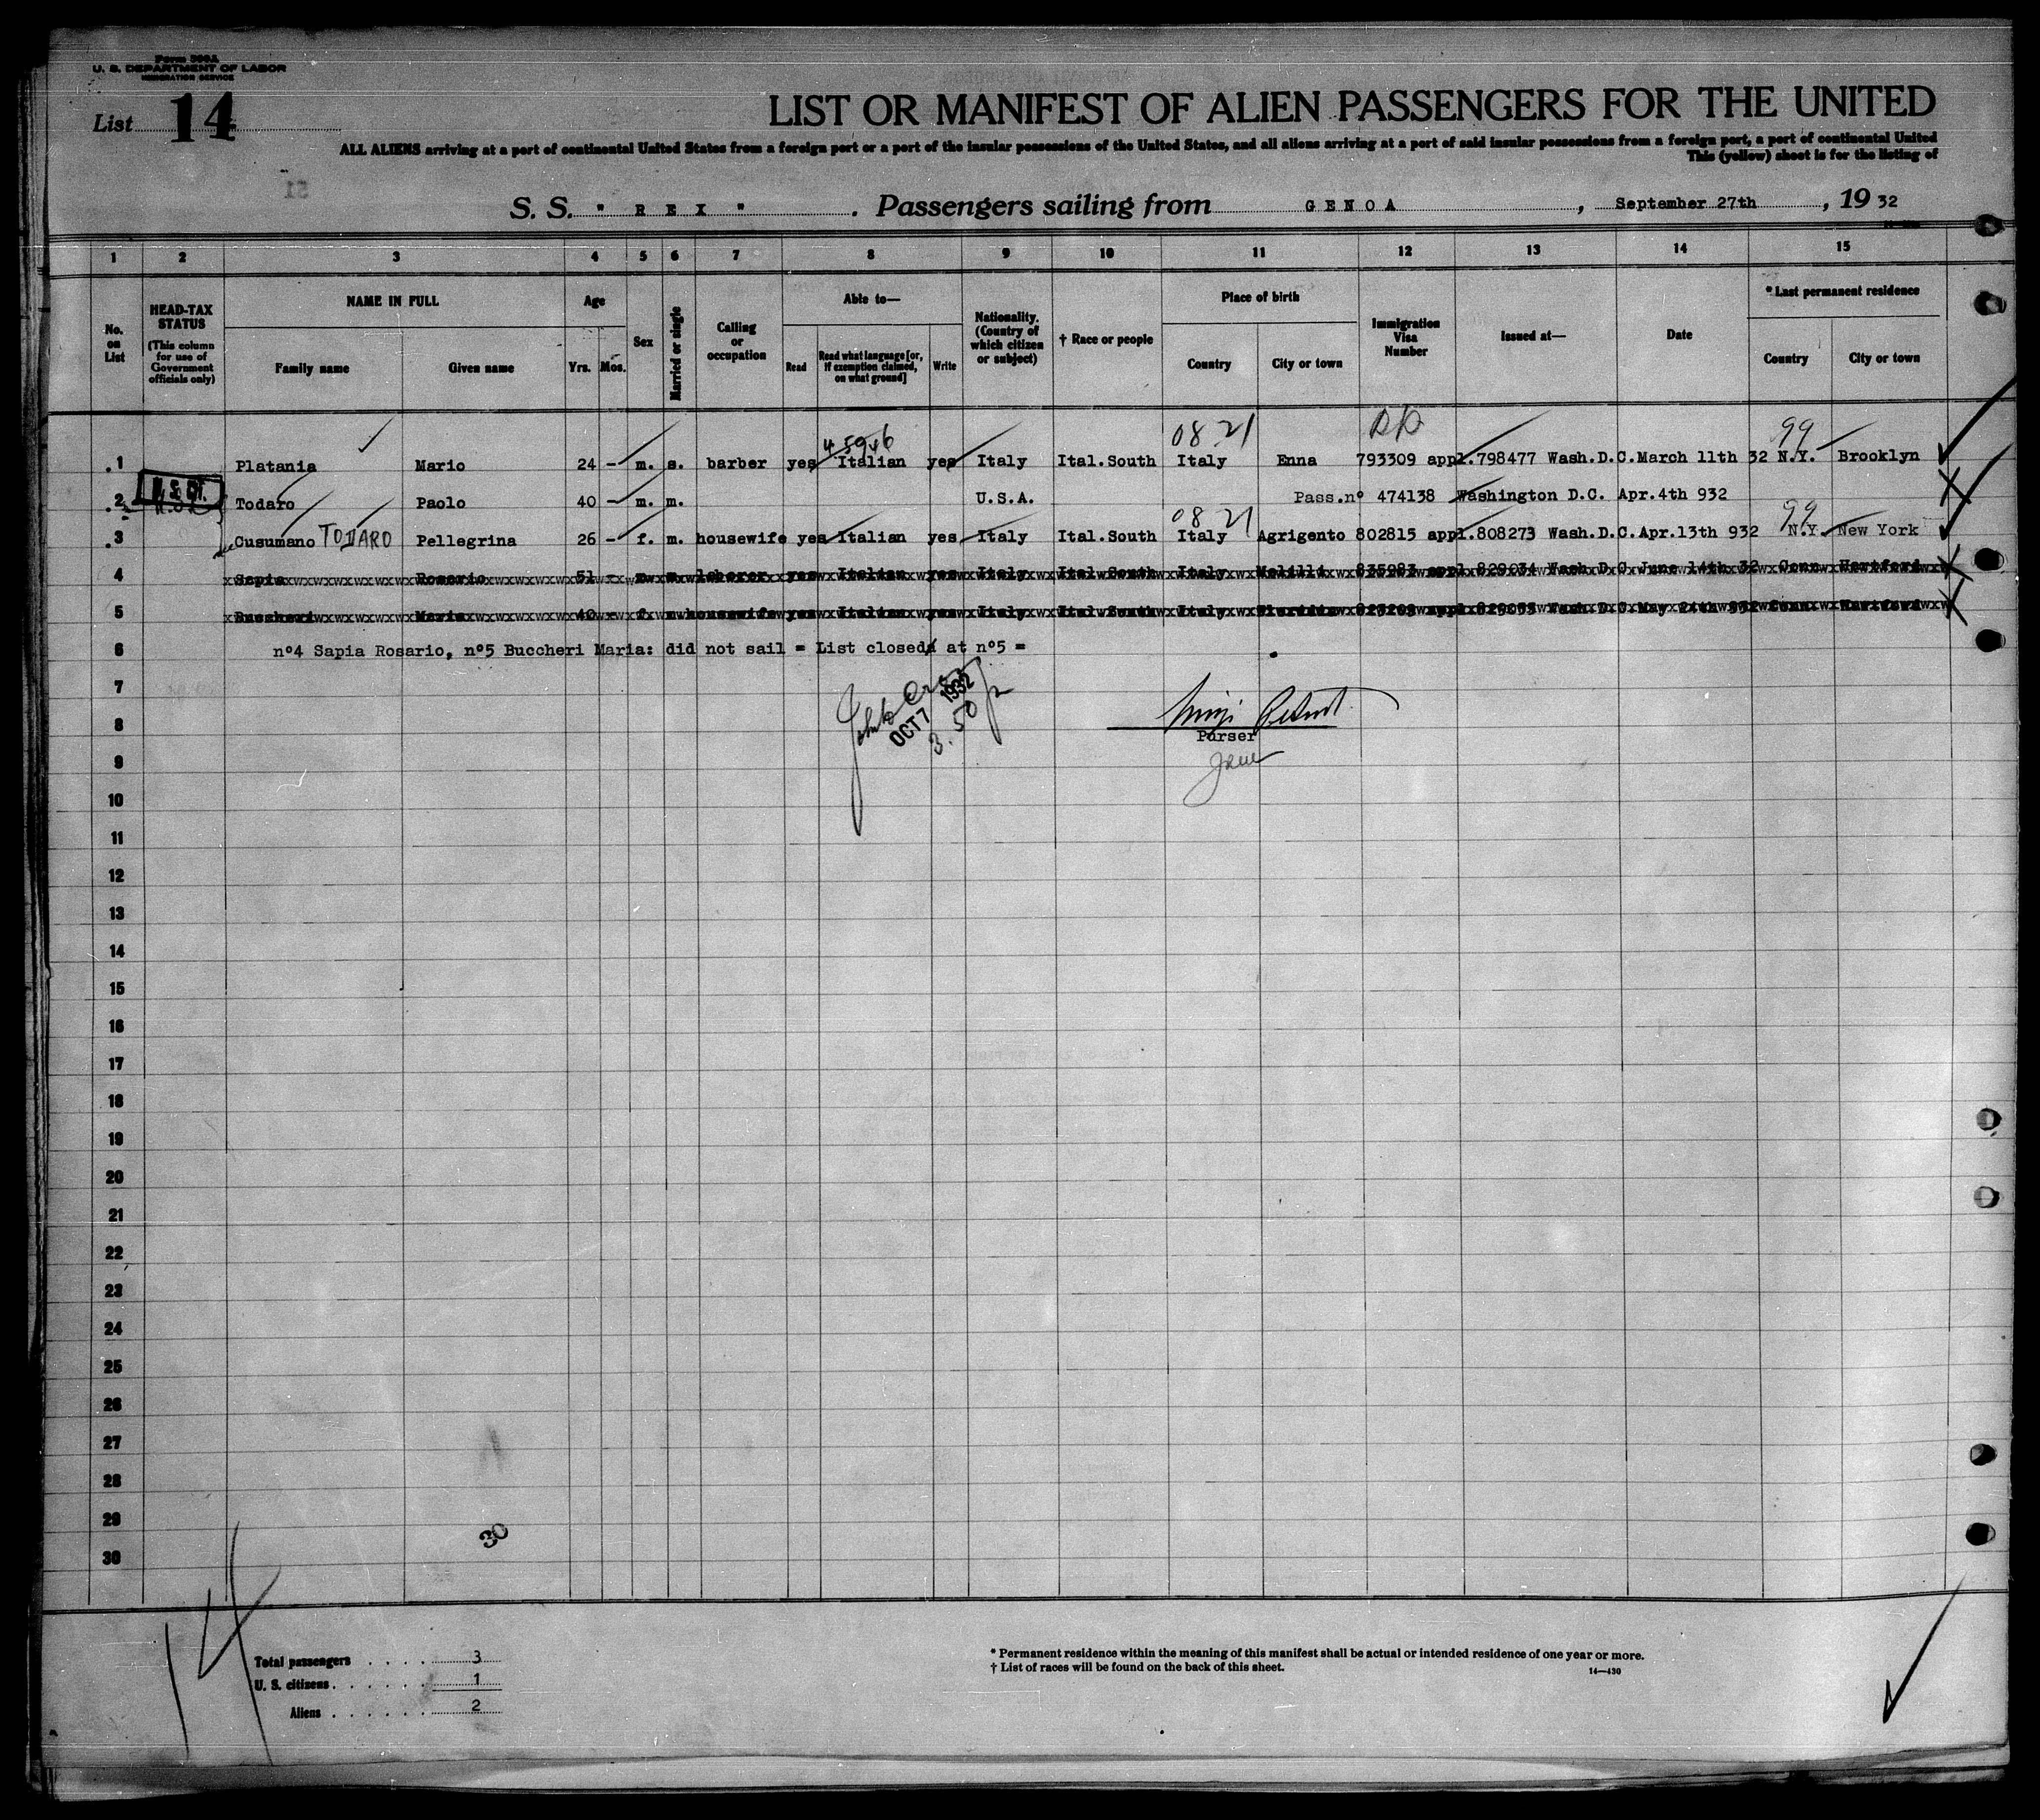 Form 500A
U. S. DEPARTMENT OF LABOR
IMMIGRATION SERVICE
List 14
LIST OR MANIFEST OF ALIEN PASSENGERS FOR THE UNITED
ALL ALIENS arriving at a port of continental United States from a foreign port or a port of the insular possessions of the United States, and all aliens arriving at a port of said insular possessions from a foreign port, a port of continental United
This (yellow) sheet is for the listing of
S. S. " R E X " . Passengers sailing from G E N O A , September 27th , 19 32
1 2 3 4 5 6 7 8 9 10 11 12 13 14 15
No. on List
HEAD-TAX STATUS
(This column for use of Government officials only)
NAME IN FULL
Family name
Given name
Age
Yrs.
Mos.
Sex
Married or single
Calling or occupation
Able to—
Read
Read what language [or, if exemption claimed, on what ground]
Write
Nationality. (Country of which citizen or subject)
† Race or people
Place of birth
Country
City or town
Immigration Visa Number
Issued at—
Date
* Last permanent residence
Country
City or town
08 21 99
1 Platania Mario 24 - m. s. barber yes Italian yes Italy Ital.South Italy Enna 793309 appl.798477 Wash.D.C.March 11th 32 N.Y. Brooklyn
2 Todaro Paolo 40 - m. m. U.S.A. Pass.nº 474138 Washington D.C. Apr.4th 932
08 21 99
3 Cusumano TODARO Pellegrina 26 - f. m. housewife yes Italian yes Italy Ital.South Italy Agrigento 802815 appl.808273 Wash.D.C.Apr.13th 932 N.Y. New York
4 Sapia Rosario 51 - m. m. laborer yes Italian yes Italy Ital.South Italy Melilli 835983 appl.829034 Wash.D.C.June 14th 32 Conn. Hartford
5 Buccheri Maria 40 - f. m. housewife yes Italian yes Italy Ital.South Italy appl. Wash.D.C.May 24th 932 Conn. Hartford
6 nº4 Sapia Rosario, nº5 Buccheri Maria: did not sail = List closed at nº5 =
7
OCT 7 1932
8
3.50
Purser
9
10
11
12
13
14
15
16
17
18
19
20
21
22
23
24
25
26
27
28
29
30
30
14
Total passengers . . . . 3
U. S. citizens . . . . . . 1
Aliens . . . . . . 2
* Permanent residence within the meaning of this manifest shall be actual or intended residence of one year or more.
† List of races will be found on the back of this sheet.
14—430